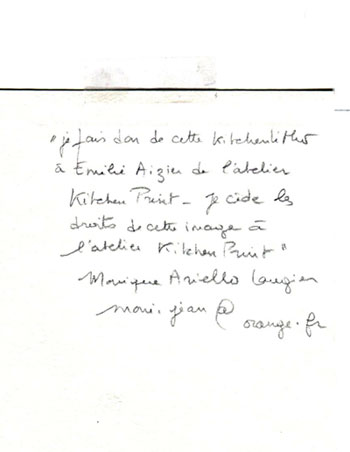 "je fais don de cette kitchenlitho
à Emilie Aizier de l'atelier
Kitchen Print - Je cède les
droits de cette image à
l'atelier Kitchen Print"
Monique Ariello Laugier
moni.jean@
orange.fr